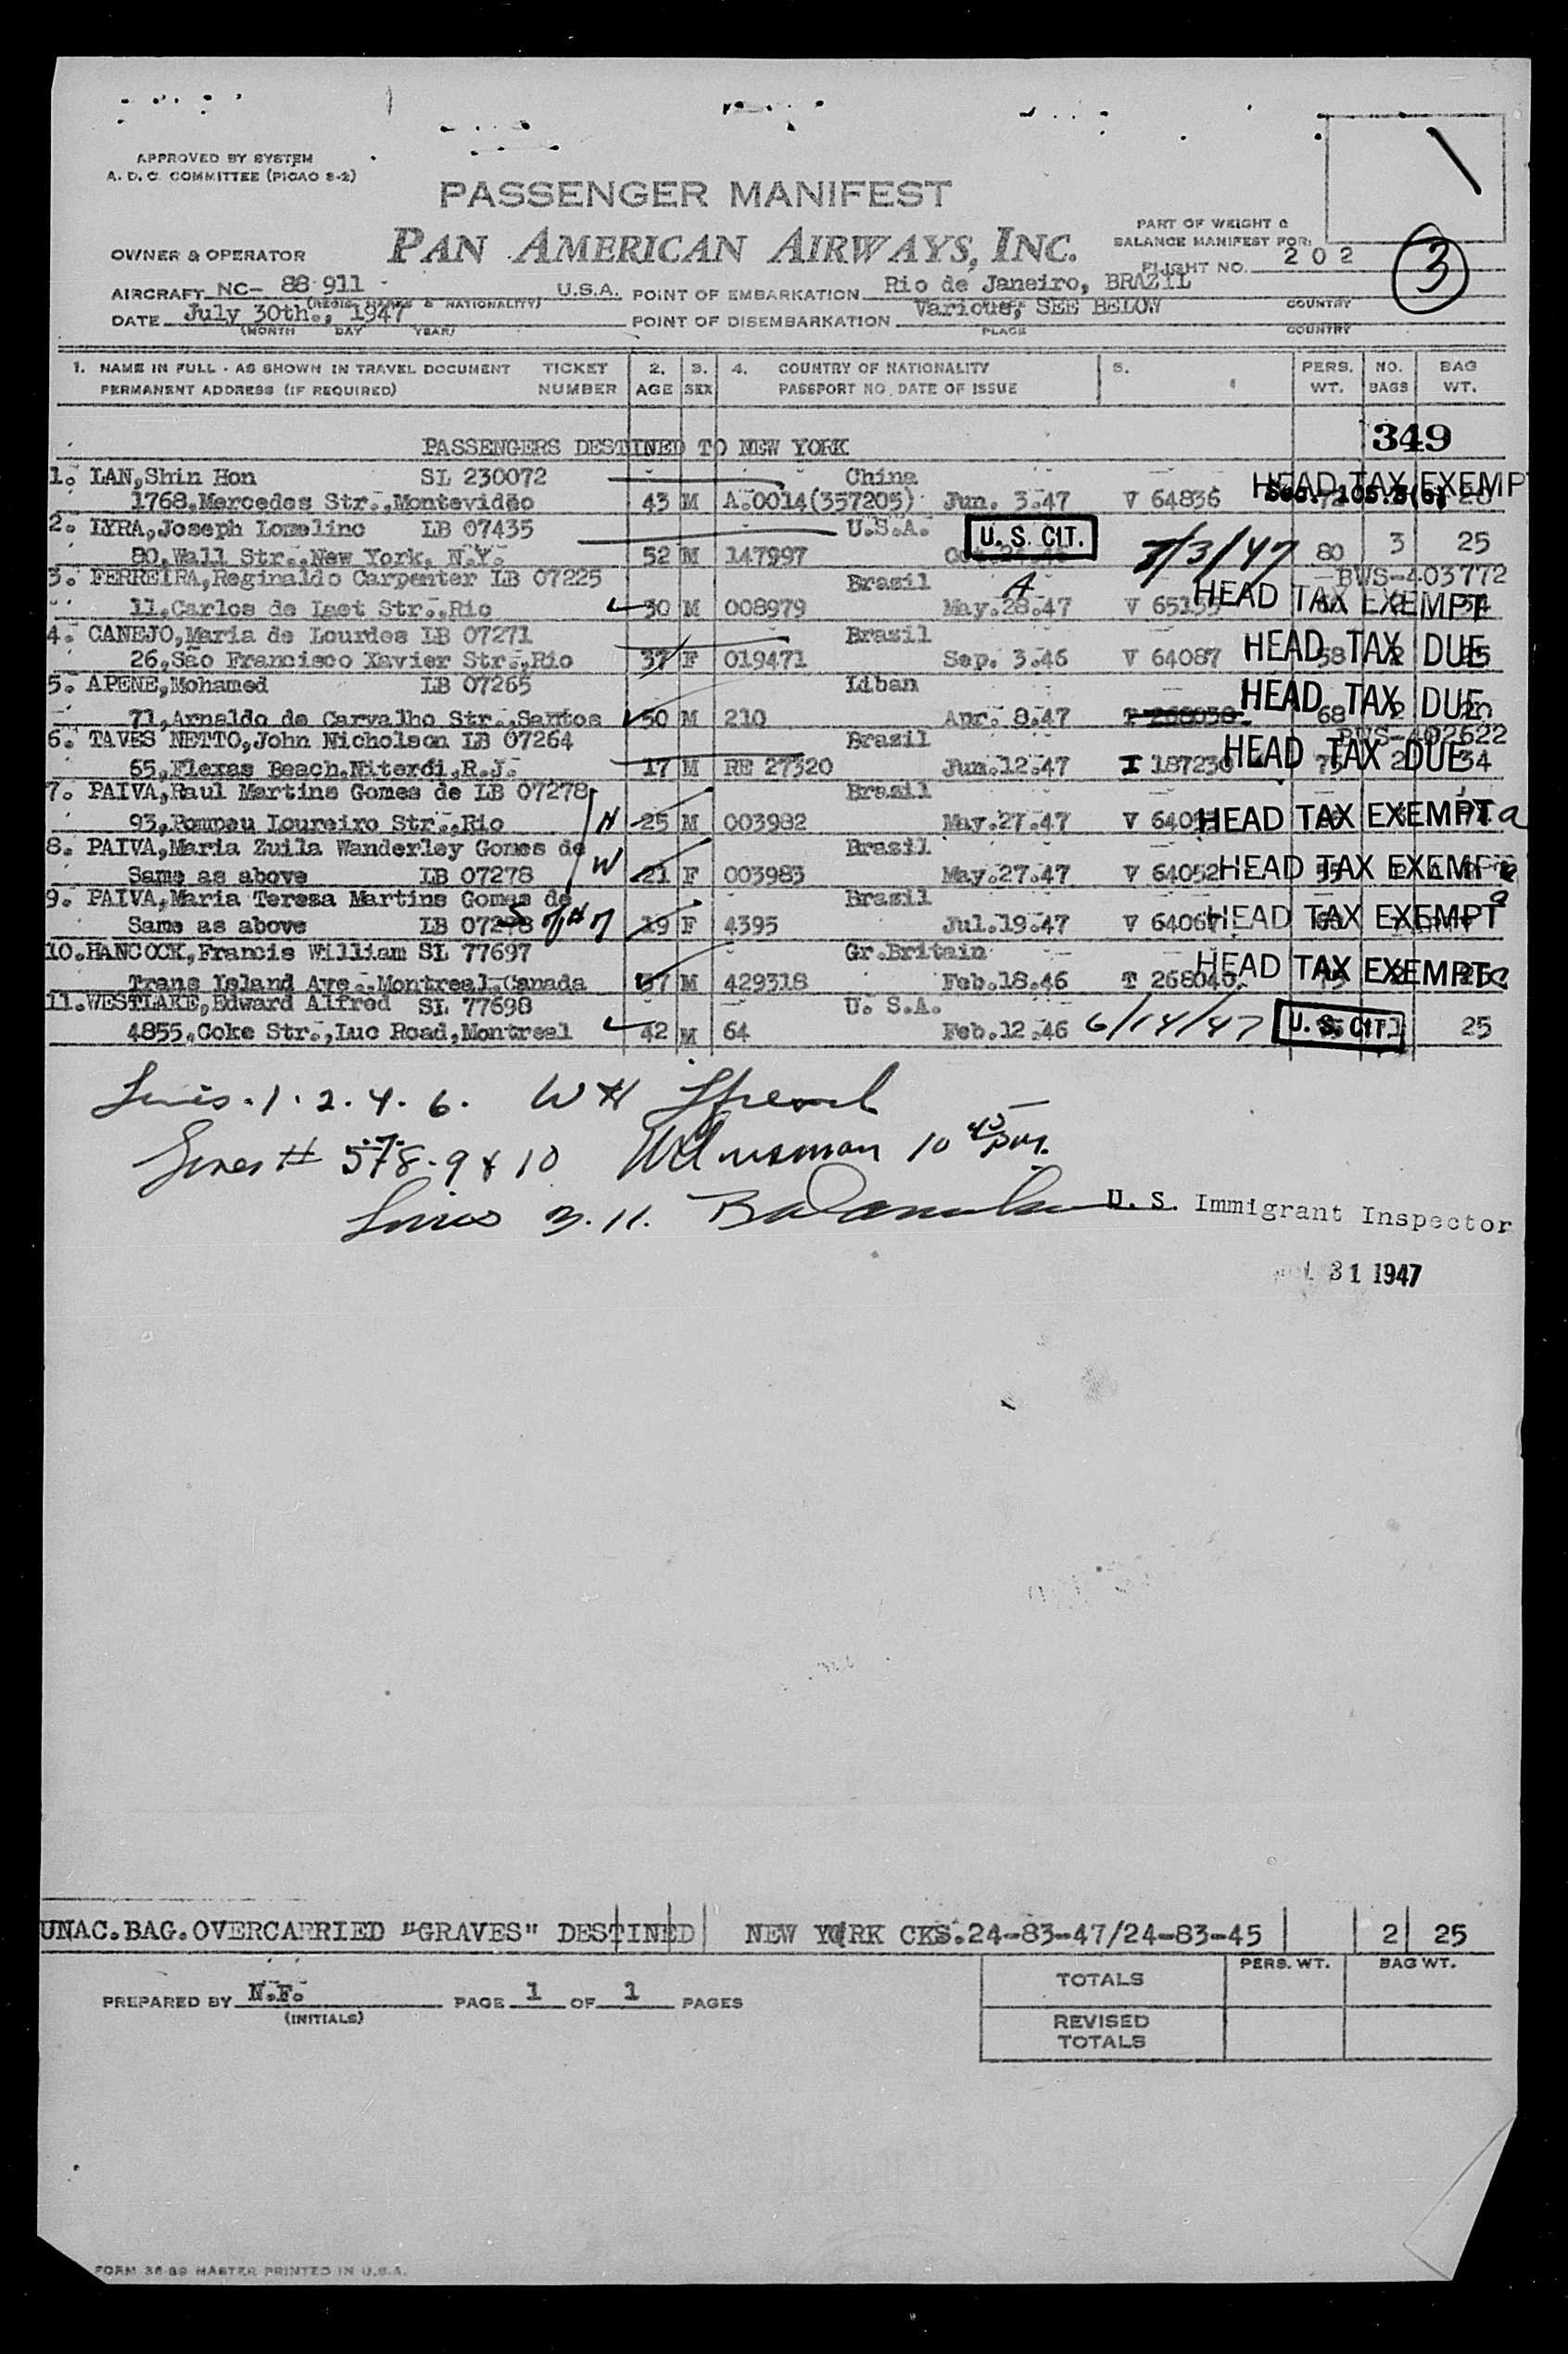 APPROVED BY SYSTEM
A. D. C. COMMITTEE (PICAO 8-2)
PASSENGER MANIFEST
PAN AMERICAN AIRWAYS, INC.
PART OF WEIGHT &
BALANCE MANIFEST FOR:
FLIGHT NO. 202
3
OWNER & OPERATOR
AIRCRAFT NC- 88 911 - U.S.A. POINT OF EMBARKATION Rio de Janeiro, BRAZIL
(REGIS. MARKS & NATIONALITY) COUNTRY
DATE July 30th., 1947 POINT OF DISEMBARKATION Various, SEE BELOW
(MONTH DAY YEAR) PLACE COUNTRY
1. NAME IN FULL - AS SHOWN IN TRAVEL DOCUMENT TICKET 2. 3. 4. COUNTRY OF NATIONALITY 5. PERS. NO. BAG
PERMANENT ADDRESS (IF REQUIRED) NUMBER AGE SEX PASSPORT NO. DATE OF ISSUE WT. BAGS WT.
PASSENGERS DESTINED TO NEW YORK 349
1. LAN,Shin Hon SL 230072 China HEAD TAX EXEMP
1768.Mercedes Str.,Montevidéo 43 M A.0014(357205) Jun. 3.47 V 64836
2. LYRA,Joseph Lomelino LB 07435 U.S.A. U. S. CIT.
80.Wall Str.,New York, N.Y. 52 M 147997 80 3 25
3. FERREIRA,Reginaldo Carpenter LB 07225 Brazil A BWS-403772
11.Carlos de Laet Str.,Rio 30 M 008979 May.28.47 HEAD TAX EXEMPT
4. CANEJO,Maria de Lourdes LB 07271 Brazil
26.São Francisco Xavier Str.,Rio 37 F 019471 Sep. 3.46 V 64087 HEAD TAX DUE
5. APENE,Mohamed LB 07265 Liban
71,Arnaldo de Carvalho Str.,Santos 50 M 210 Apr. 8.47 T 268038. HEAD TAX DUE
6. TAVES NETTO,John Nicholson LB 07264 Brazil BWS-402622
65,Flexas Beach.Niterói,R.J. 17 M RE 27320 Jun.12.47 I 187236 HEAD TAX DUE 34
7. PAIVA,Raul Martins Gomes de LB 07278 Brazil
93,Pompeu Loureiro Str.,Rio 25 M 003982 May.27.47 HEAD TAX EXEMPT
8. PAIVA,Maria Zuila Wanderley Gomes de Brazil
Same as above LB 07278 W 21 F 003983 May.27.47 V 64052 HEAD TAX EXEMPT
9. PAIVA,Maria Teresa Martins Gomes de Brazil
Same as above 19 F 4395 Jul.19.47 HEAD TAX EXEMPT
10.HANCOCK,Francis William SL 77697 Gr.Britain
Trans Island Ave..Montreal.Canada 57 M 429318 Feb.18.46 T 268040. HEAD TAX EXEMPT
11.WESTLAKE,Edward Alfred SL 77698 U. S.A.
4855.Coke Str.,Luc Road,Montreal 42 M 64 Feb.12.46 6/14/47 U. S. CIT. 25
Lines. 1. 2. 4. 6.
Lines # 5 7 8. 9 & 10 10 45 pm.
Lines 3. 11. U. S. Immigrant Inspector
31 1947
UNAC.BAG.OVERCARRIED "GRAVES" DESTINED NEW YORK CKS.24-83-47/24-83-45 2 25
PREPARED BY N.F. PAGE 1 OF 1 PAGES
(INITIALS)
TOTALS PERS. WT. BAG WT.
REVISED
TOTALS
FORM 36-89 MASTER PRINTED IN U.S.A.